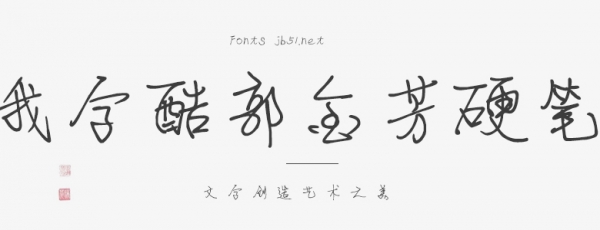 Fonts jb51.net
我字酷郭金芳硬笔
文字创造艺术之美